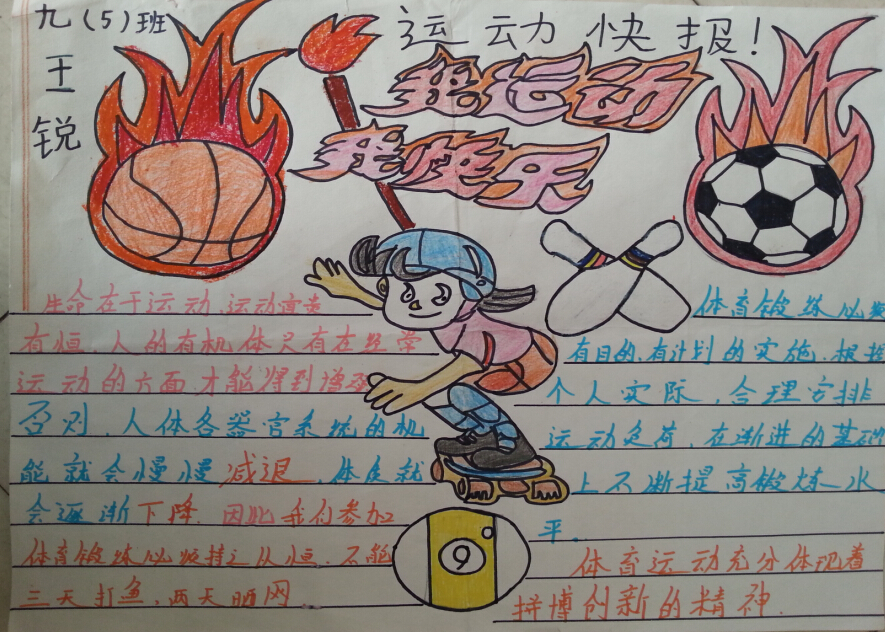 九(5)班
王锐
运动快报!
我运动
我快乐
生命在于运动,运动贵
有恒,人的有机体只有在经常
运动的方面,才能得到增强
否则,人体各器官系统的机
能就会慢慢减退,体质就
会逐渐下降.因此我们参加
体育锻炼必须持之以恒.不能
三天打鱼,两天晒网
体育锻炼必须
有目的,有计划的实施.根据
个人实际,合理安排
运动负荷,在渐进的基础
上不断提高锻炼水
平。
体育运动充分体现着
拼博创新的精神.
9